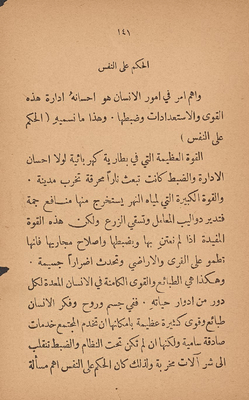 ١٤١
الحكم على النفس
واهم امر في امور الانسان هو احسانهُ ادارة هذه
القوى والاستعدادات وضبطها . وهذا ما نسميهِ ( الحكم
على النفس )
القوة العظيمة التي في بطارية كهربائية لولا احسان
الادارة والضبط كانت تبعث ناراً محرقة تخرب مدينة .
والقوة الكبيرة التي لمياه النهر يستخرج منها منافع جمة
فتدير دواليب المعامل وتسقي الزرع ولكن هذه القوة
المفيدة اذا لم نعتنِ بها وبضبطها واصلاح مجاريها فانها
تطمو على القرى والاراضي وتحدث اضراراً جسيمة .
وهكذا هي الطبائع والقوى الكامنة في الانسان المعدة لكل
دور من ادوار حياتهِ . ففي جسم وروح وفكر الانسان
طبائع وقوى كثيرة عظيمة بامكانها ان تخدم المجتمع خدمات
صادقة سامية ولكنها ان لم تكن تحت النظام والضبط تنقلب
الى شر آلات مخربة ولذلك كان الحكم على النفس اهم مسألة